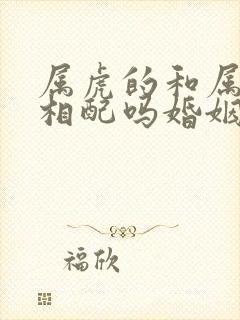 属虎的和属
相配吗婚姻
福欣